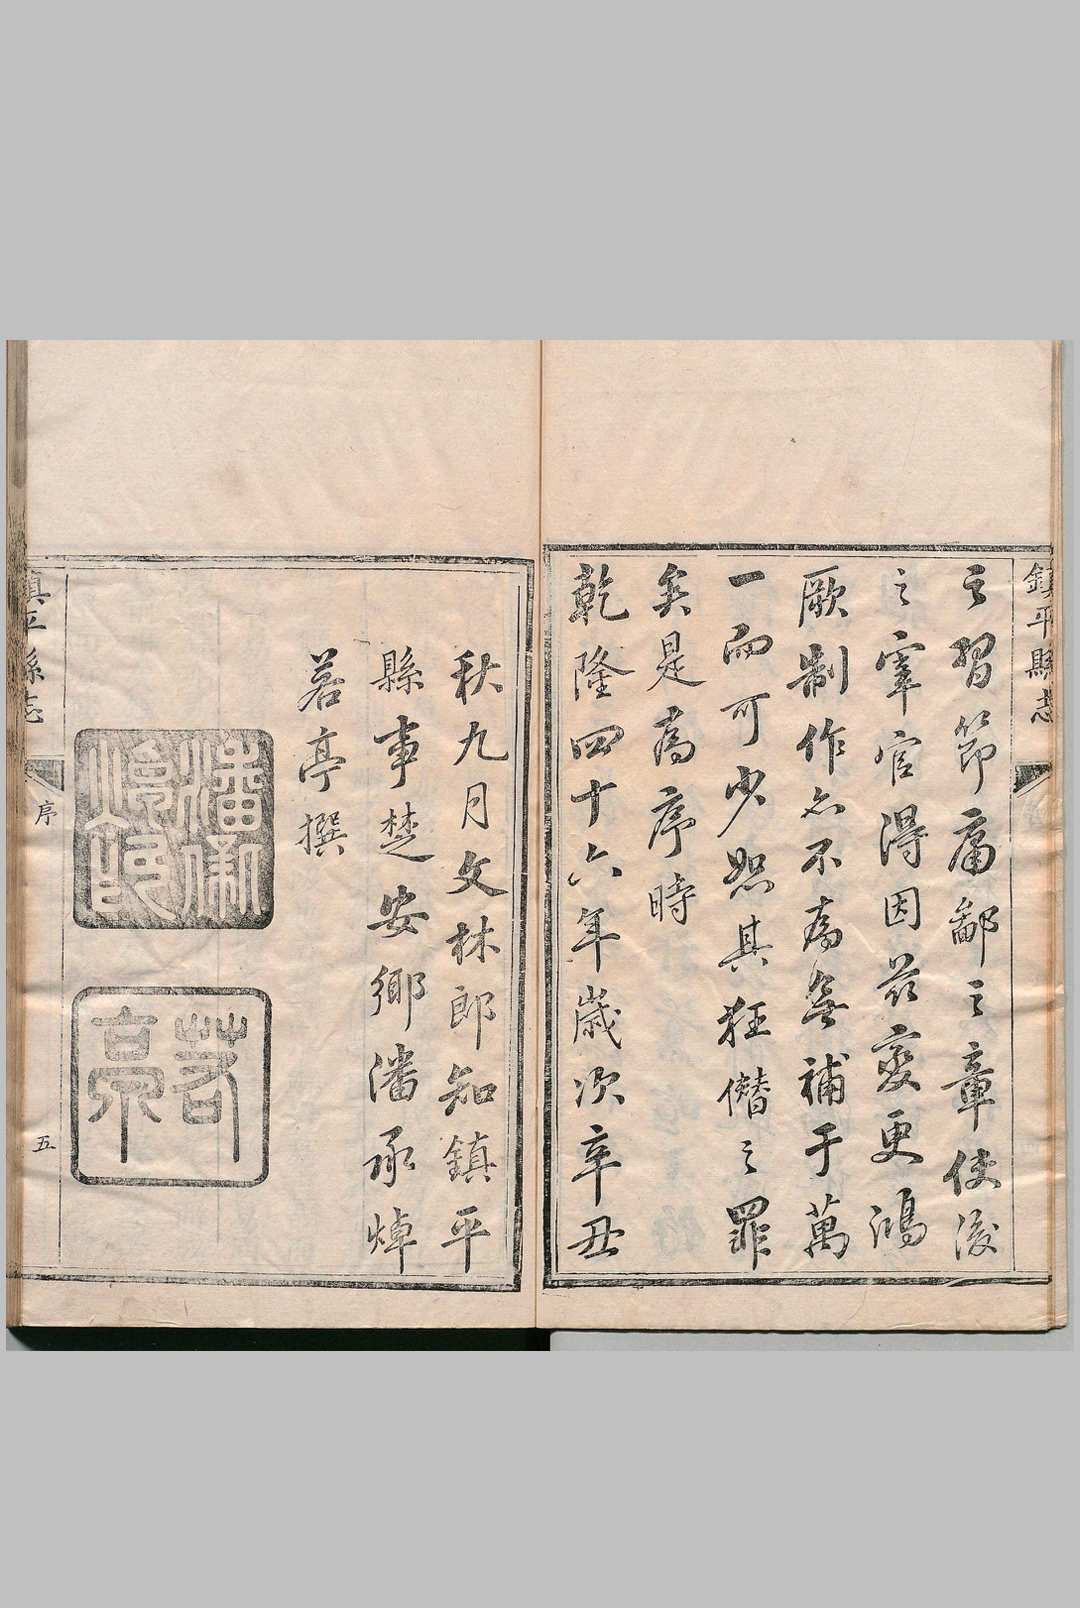 鎮平縣志
之習節庸鄙之章使後
之宰官得因茲變更鴻
厥制作亦不為無補于萬
一而可少恕其狂僭之罪
矣是為序時
乾隆四十六年歲次辛丑
秋九月文林郎知鎮平
縣事楚安鄉潘承焯
若亭撰
潘承
焯印
若
亭
鎮平縣志
序
五